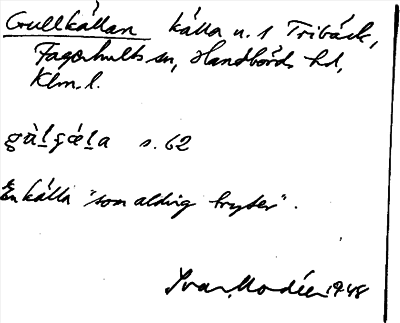 Gullkällan källa u. s Tribäck,
Fagerhults sn, Handbörds hd,
Klm. l.
s. 62
En källa "som aldrig tryter".
Ivar Modéer 1948